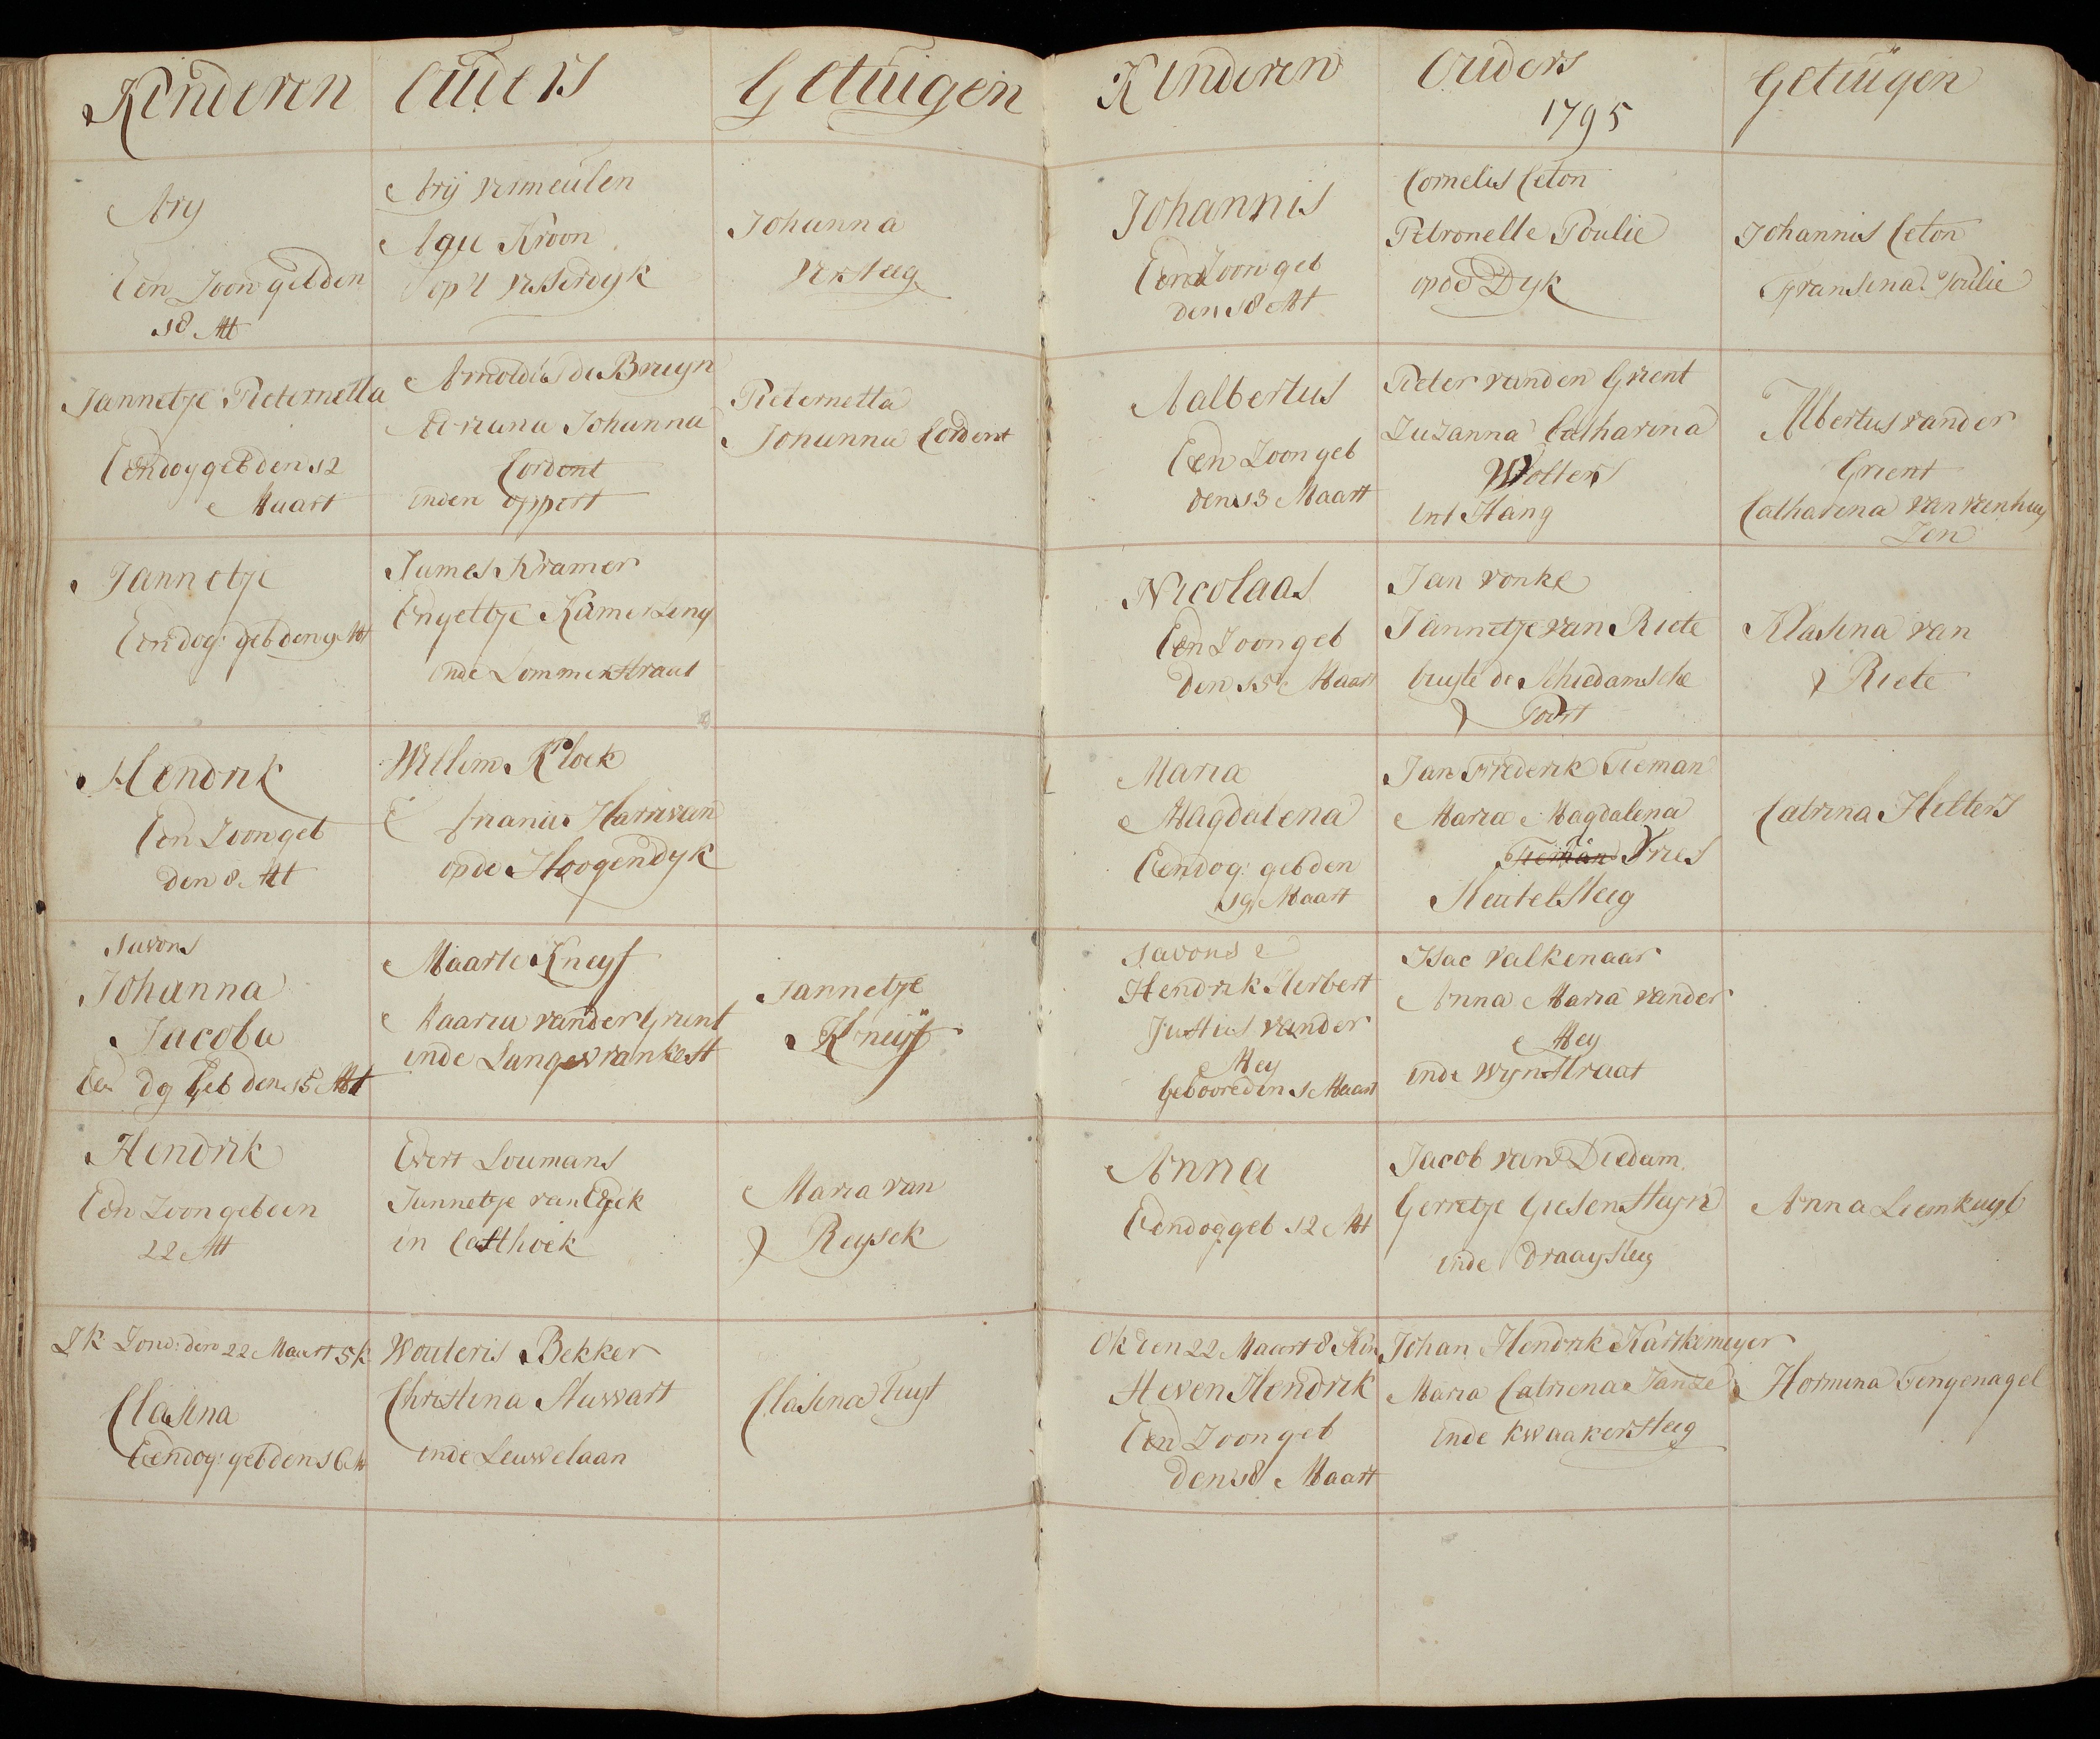 Kinderen
Ouders
Getuigen
Ary
Een Zoon geb den
18 Mt
Arij Vermeulen
Agie Kroon
op't Vissersdyk
Johanna
Versteeg
Jannetje Pieternella
Een dog geb den 12
Maart
Arnoldus de Bruijn
Adriana Johanna
Cordont
inden oppert
Pieternella
Johanna Cordont
Jannetje
Een dog: geb den 9 Mt
James Kramer
Engeltje Kamerling
inde Lommerstraat
Hendrik
Een Zoon geb
den 8 Mt
Willem Kloek
Harrivan
op de Hoogendyk
savons
Johanna
Jacoba
Een dg Geb den 15 Mt
Maarte Kneyf
Maaria vander Grient
inde Lange Frankest
Jannetje
Kneijf
Hendrik
Een Zoon geb den
22 Mt
Evert Loumans
Jannetje van Eyck
in Casthoek
Maria van
Reysek
Zond: den 22 Maart 5 K
Clasina
Een dog: geb den 16 M
Wouteris Bekker
Christina Stuwart
inde Leuwelaan
Clasina Tuyt
Kinderen
Ouders
1795
Getuigen
Johannis
Een Zoon geb
den 18 Mt
Cornelis Ceton
Petronelle Poulie
op de Dyk
Johannis Ceton
Fransina Poulie
Aalbertus
Een Zoon geb
den 13 Maart
Pieter vanden Grient
Zuzanna Catharina
Wolters
int Hang
Albertus vander
Grient
Catharina van veenhuy
Zen
Nicolaas
Een Zoon geb
den 15 Maart
Jan vonke
Jannetje van Riete
buyte de Schiedamsche
Poort
Klasina van
Riete
Maria
Magdalena
Een dog: geb den
19 Maart
Jan Frederik Tieman
Maria Magdalena
Tieman Fries
Keutelsteeg
Catrina Hilters
savons
Hendrik Herbert
Justus vander
Mey
Gebooreden 1 Maart
Isac Valkenaar
Anna Maria vander
Mey
inde Wynstraat
Anna
Een dog geb 12 Mt
Jacob van Diedam
Gerretje Giesensteyn
inde Draaysteeg
Anna Liemkuyl
Ok den 22 Maart 8 Kin
Steven Hendrik
Een Zoon geb
den 18 Maart
Johan Hendrik Hartkemeyer
Maria Catriena Janze
inde kwaakersteeg
Hermina Tengenagel